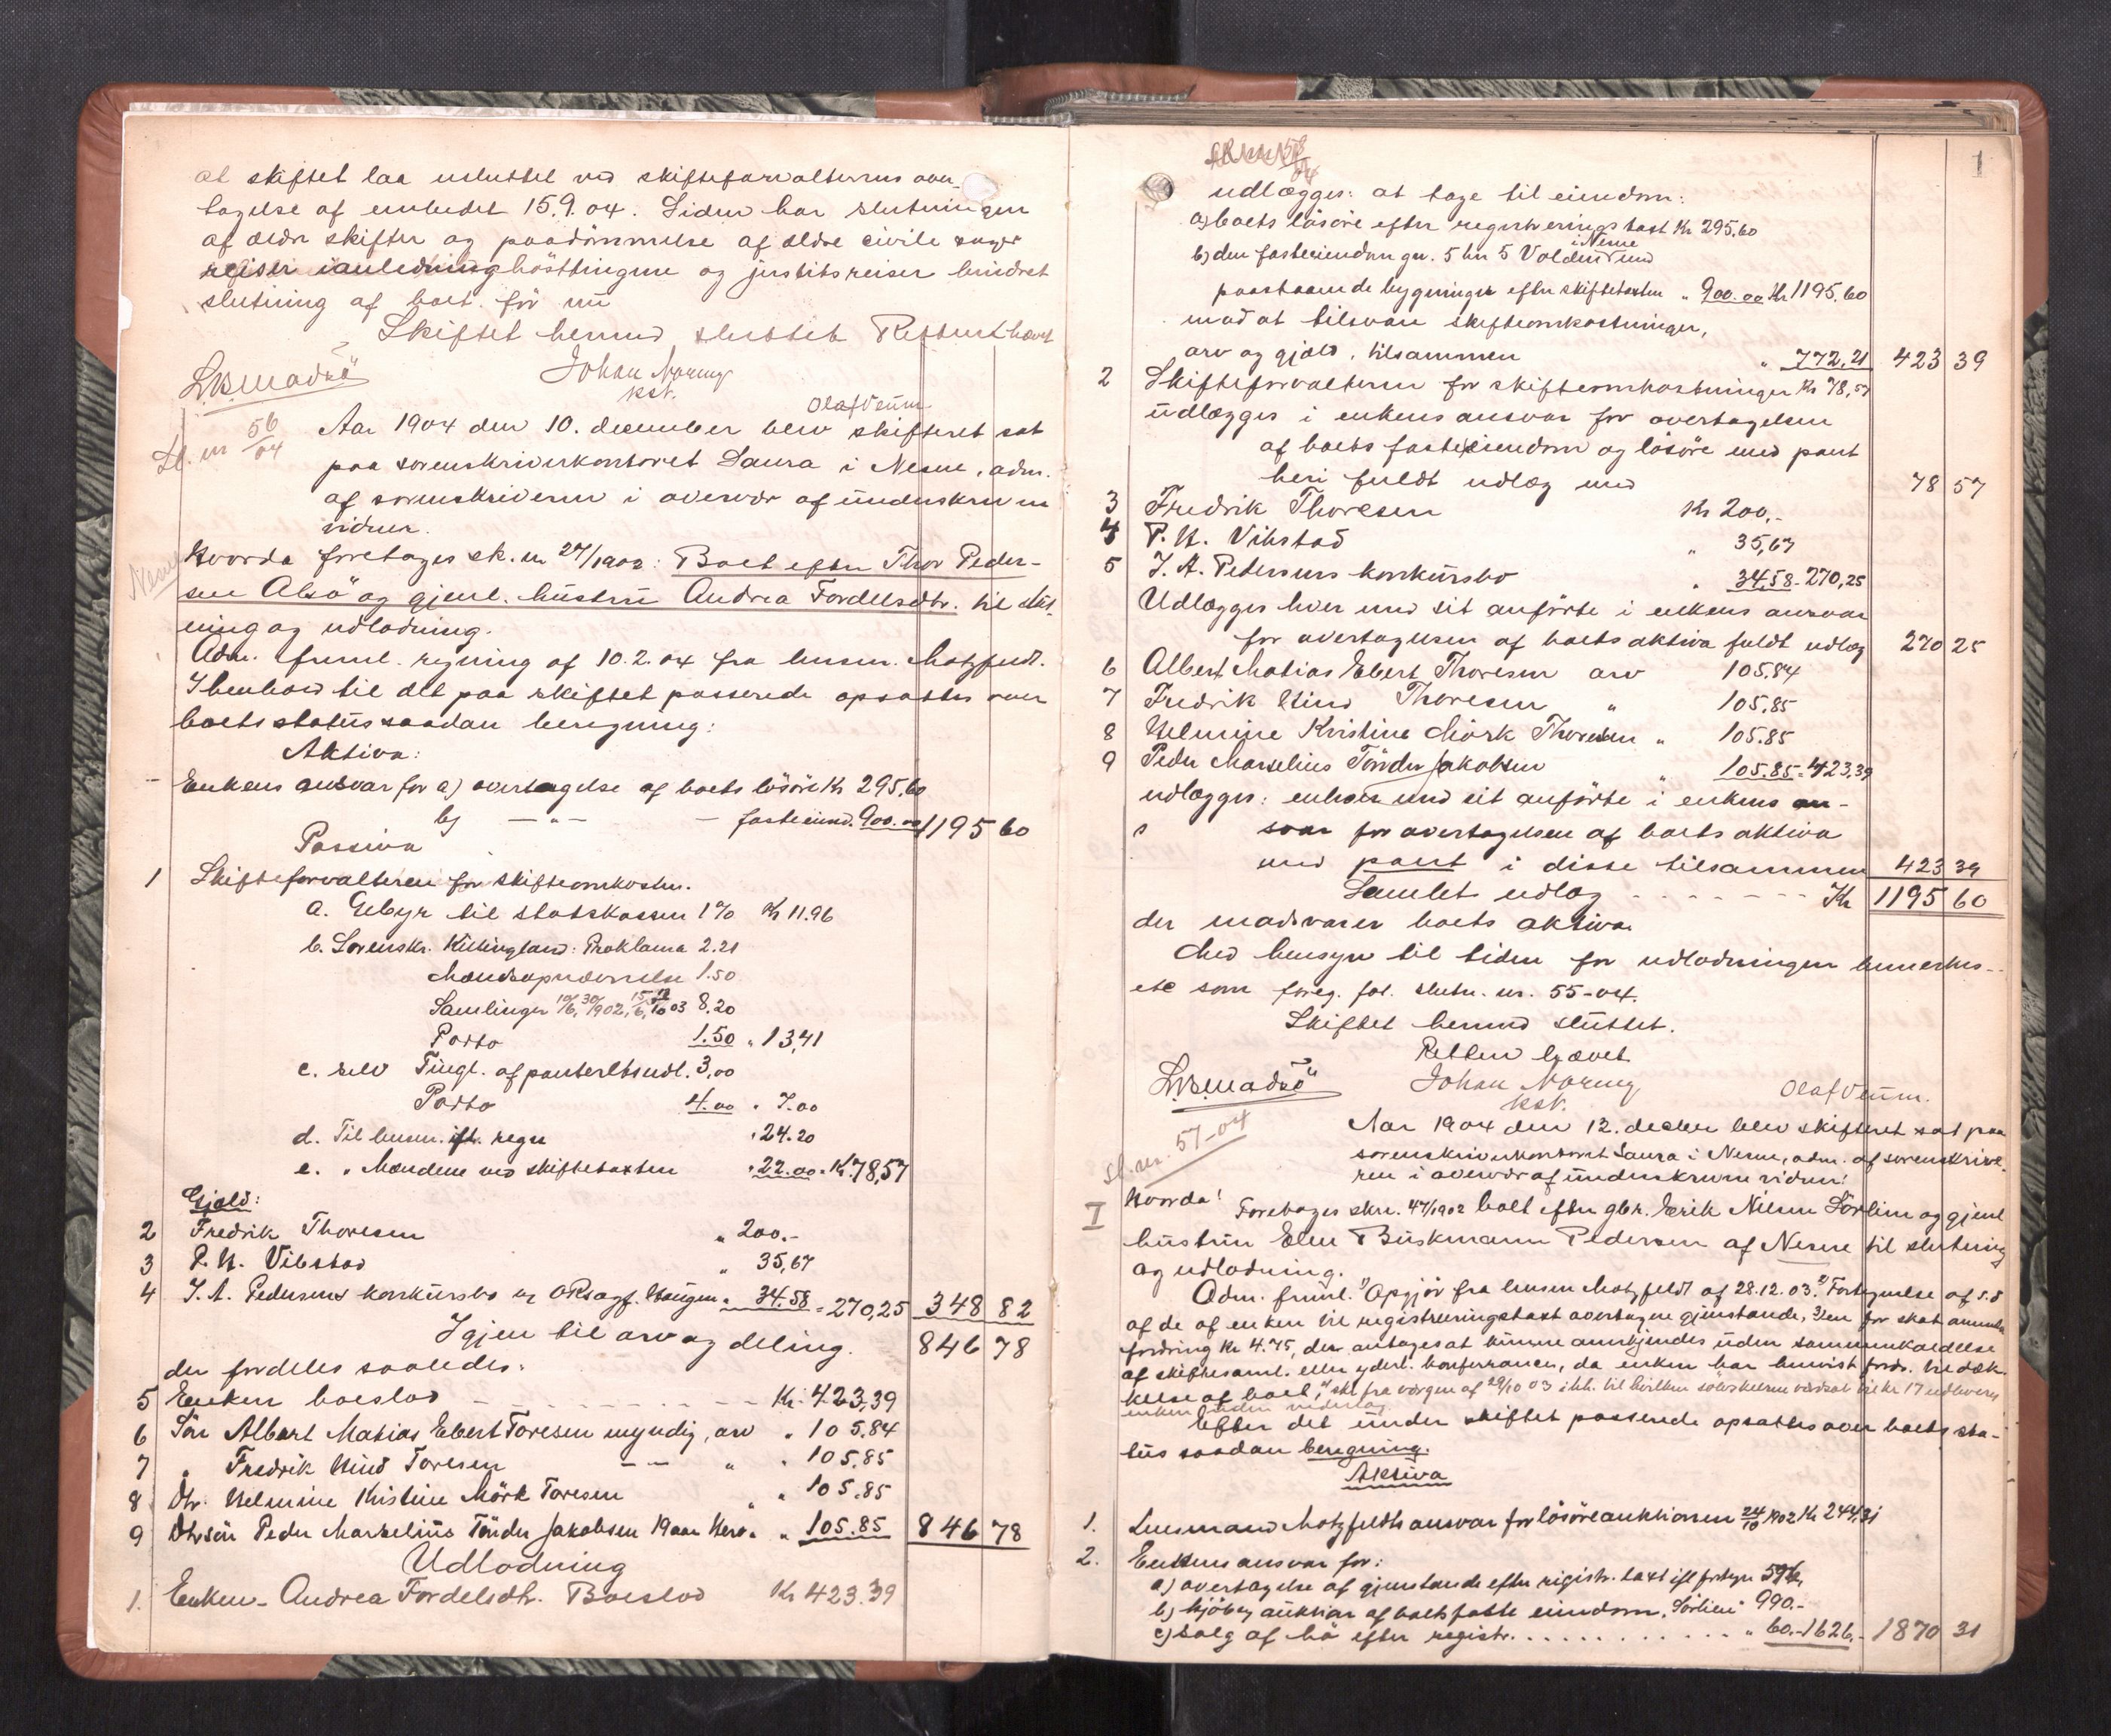 at skiftet laa usluttet ved skifteforvalterens over-
tagelse af embedet 15.9.04. Siden har slutningen
af ældre skifter og paadömmelse af ældre civile sager
reiser ianledning hösttingene og justitsreiser hindret
slutning af boet för nu
Skiftet hermed sluttet Retten hævet
Johan Noring
kst.
Olaf Veum.
Sl. nr 56/04
Aar 1904 den 10. december blev skifteret sat
paa sorenskriverkontoret Saura i Nesne, adm.
af sorenskriveren i overvær af underskrevne
vidner.
Hvorda foretages sk. nr 27/1902: Boet efter Thor Peder-
sen Alsö og gjenl. hustru Andrea Fordelsdtr. til slut-
ning og udlodning.
Adm. freml. regning af 10.2.04 fra lensm. Motzfeldt.
I henhold til det paa skiftet passerede opsattes over
boets status saadan beregning:
Aktiva:
Enkens ansvar for a) overtagelse af boets lösöre Kr 295,60
b) — „ — — fasteeiend. 900.00 1195 60
Passiva
1 Skifteforvalteren for skifteomkostn.
a. Gebyr til statskassen 1% Kr 11.96
b. Sorenskr. Killingland: Proklama 2.21
Mændsopnævnelse 1.50
Samlinger 8.20
Porto 1.50 „ 13,41
c. selv Tingl. af panteretsudl. 3,00
Porto 4.00 „ 7.00
d. Til lensm. ifl. regn „ 24.20
e. „ Mændene ved skiftetaxten „ 22.00 „ Kr 78,57
Gjæld:
2 Fredrik Thoresen „ 200.-
3 P. H. Vikstad „ 35,67
4 J. A. Pedersens konkursbo v. ORsagf. Haugen „ 34.58 = 270,25 348 82
Igjen til arv og deling. 846 78
der fordeles saaledes:
5 Enken boeslod - - - - Kr. 423,39
6 Sön Albert Matias Ebert Toresen myndig, arv „ 105.84
7 „ Fredrik Hind Toresen — „ „ 105.85
8 Dtr. Helmine Kristine Mörk Toresen „ „ 105.85
9 Dtrsön Peder Marselius Tönder Jakobsen 19 aar „ 105.85 846 78
Udlodning
1. Enken - Andrea Fordelsdtr. Boeslod Kr 423.39
1
udlægges: at tage til eiendom:
a) boets lösöre efter registreringstaxt Kr 295.60
i Nesne
b) den fasteeiendom gn. 5 bn 5 Volden med
paastaaende bygninger efter skiftetaxten „ 900.00 Kr 1195,60
mod at tilsvare skifteomkostninger,
arv og gjæld, tilsammen „ 772.21 423 39
2 Skifteforvalteren for skifteomkostninger Kr 78,57
udlægges i enkens ansvar for overtagelsen
af boets fasteeiendom og lösöre med pant
heri fuldt udlæg med 78 57
3 Fredrik Thoresen Kr 200,-
4 P. H. Vikstad „ 35,67
5 J. A. Pedersens konkursbo „ 34.58 - 270,25
Udlægges hver med sit anförte i enkens ansvar
for overtagelsen af boets aktiva fuldt udlæg 270 25
6 Albert Matias Ebert Thoresen arv 105.84
7 Fredrik Hind Thoresen „ 105.85
8 Helmine Kristine Mörk Thoresen „ 105.85
9 Peder Marselius Tönder Jakobsen „ 105.85 = 423.39
udlægges: enhver med sit anförte i enkens an-
svar for overtagelsen af boets aktiva
med pant i disse tilsammen 423 39
Samlet udlæg - - - - Kr 1195 60
der modsvarer boets aktiva.
Med hensyn til tiden for udlodningen bemerkes
ste som foreg. fol. slutn. nr. 55-04.
Skiftet hermed sluttet.
Retten hævet
Johan Noring
kst.
Olaf Veum.
Sl. nr. 57-04
Aar 1904 den 12. decber blev skifteret sat paa
sorenskriverkontoret Saura i Nesne, adm. af sorenskrive-
ren i overvær af underskrevne vidner:
I Hvorda! Foretages sknr. 47/1902 boet efter gbr. Erik Nilsen Sörlien og gjenl
hustru Elen Buskmann Pedersen af Nesne til slutning
og udlodning.
Adm. freml. 1) Opgjör fra lensm Motzfeldt af 28.12.03. 2) Fortegnelse af s.d
af de af enken til registreringstaxt overtagne gjenstande, 3) en for skat anmeldt
fordring Kr 4.75, der antages at kunne anerkjendes uden sammenkaldelse
af skiftesaml. eller yderl. konferrancer, da enken har henvist fordr. til dæk-
kelse af boet, 4) skr. fra værgen af 29/10 03 ihh. til hvilken sölvskeerne værdsat til kr 17 udleveres
enken uden vederlag.
Efter det under skiftet passerede opsattes over boets sta-
tus saadan beregning.
Aktiva
1. Lensmand Motzfeldts ansvar for lösöreauktionen 24/10 1902 Kr 244,31
2. Enkens ansvar for:
a) overtagelse af gjenstande efter registr. taxt ifl fortegn 576,
b) kjöb ved auktion af boets faste eiendom „Sörlien" 990.-
c) salg af hö efter registr. . . . . . „ 60.- 1626.- 1870 31